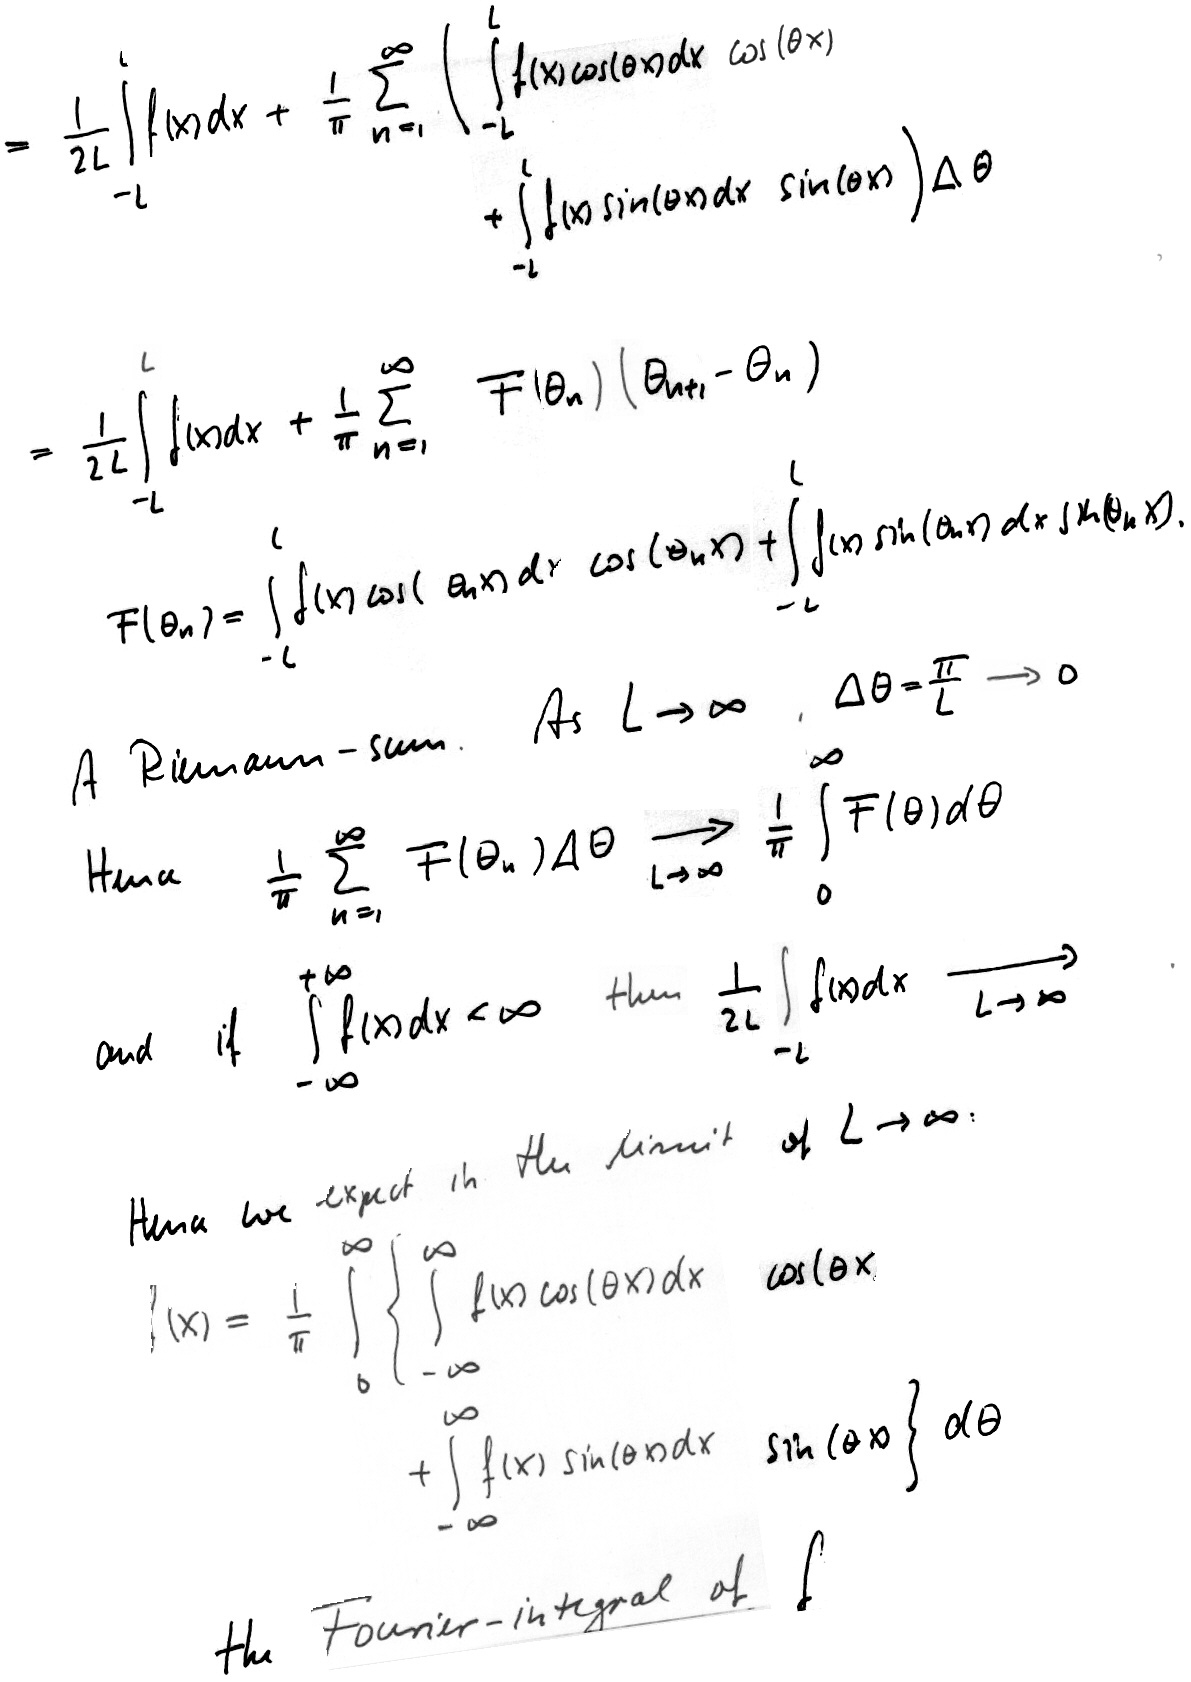 = 1/2L ∫_{-L}^{L} f(x)dx + 1/π ∑_{n=1}^{∞} ( ∫_{-L}^{L} f(x)cos(θx)dx cos(θx)
+ ∫_{-L}^{L} f(x)sin(θx)dx sin(θx) ) Δθ
= 1/2L ∫_{-L}^{L} f(x)dx + 1/π ∑_{n=1}^{∞} F(θ_n)(θ_{n+1} - θ_n)
F(θ_n) = ∫_{-L}^{L} f(x)cos(θ_n x)dx cos(θ_n x) + ∫_{-L}^{L} f(x)sin(θ_n x)dx sin(θ_n x).
A Riemann-sum. As L→∞, Δθ = π/L → 0
Hence 1/π ∑_{n=1}^{∞} F(θ_n)Δθ →_{L→∞} 1/π ∫_{0}^{∞} F(θ)dθ
and if ∫_{-∞}^{+∞} f(x)dx < ∞ then 1/2L ∫_{-L} f(x)dx →_{L→∞}
Hence we expect in the limit of L→∞:
f(x) = 1/π ∫_{0}^{∞} { ∫_{-∞}^{∞} f(x)cos(θx)dx cos(θx
+ ∫_{-∞}^{∞} f(x)sin(θx)dx sin(θx) } dθ
the Fourier-integral of f